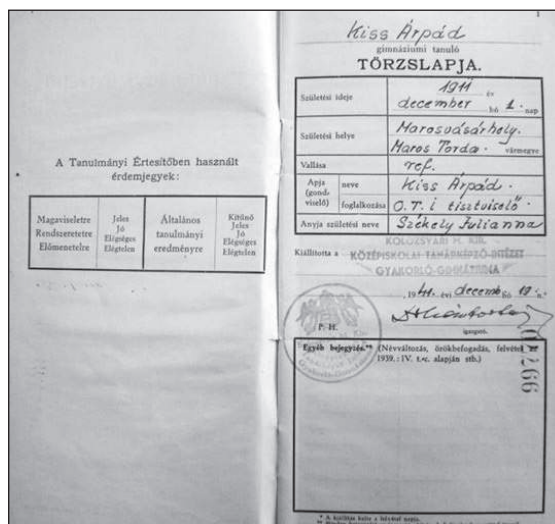 A Tanulmányi Értesítőben használt
érdemjegyek:
Magaviseletre
Rendszeretetre
Előmenetelre
Jeles
Jó
Elégséges
Elégtelen
Általános
tanulmányi
eredményre
Kitűnő
Jeles
Jó
Elégséges
Elégtelen
1
Kiss Árpád
gimnáziumi tanuló
TÖRZSLAPJA.
Születési ideje
1911 év
december hó 1. nap
Születési helye
Marosvásárhely.
Maros Torda. vármegye
Vallása ref.
Apja (gondviselő) neve Kiss Árpád.
foglalkozása O.T.I tisztviselő.
Anyja születési neve Székely Julianna
KOLOZSVÁRI M. KIR.
Kiállította a KÖZÉPISKOLAI TANÁRKÉPZŐ-INTÉZET
GYAKORLÓ-GIMNÁZIUMA
, 1941. évi decemb hó 19. n.
P. H.
igazgató.
Egyéb bejegyzés.** (Névváltozás, örökbefogadás, felvétel
1939. : IV. t.-c. alapján stb.)
* A kiállítás helye a felvétel napja.